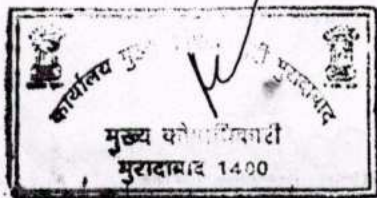 कार्यालय मुख्य मुरादाबाद
मुख्य कोषाधिकारी
मुरादाबाद 1400